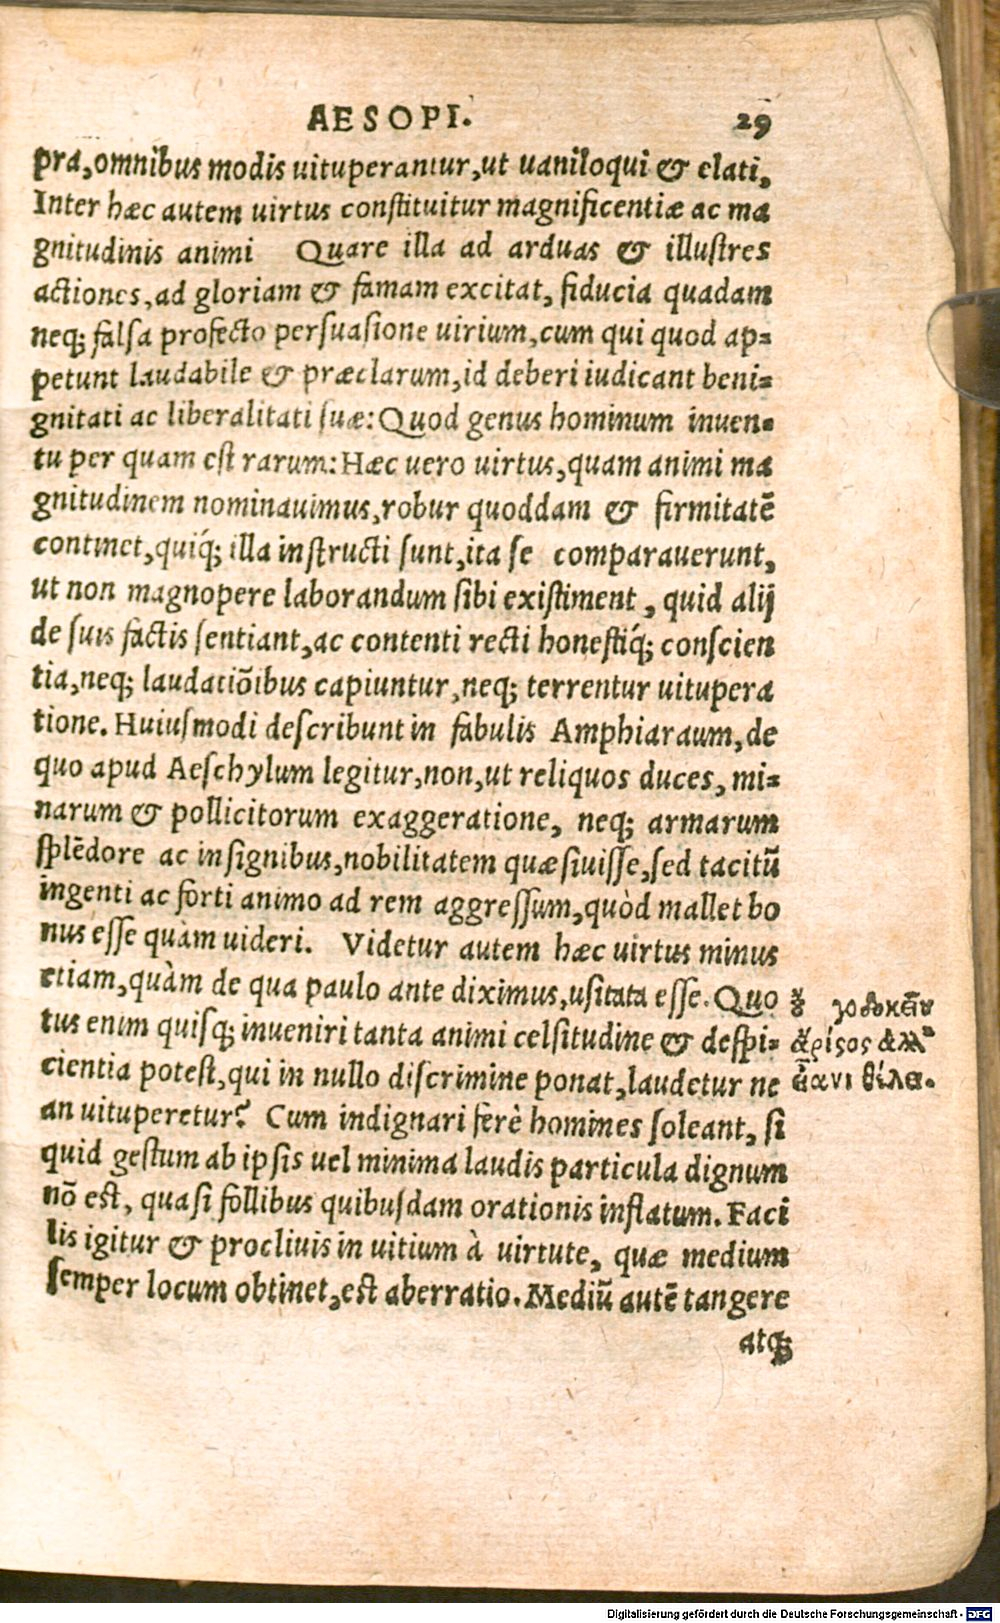 AESOPI. 29
pra, omnibus modis uituperantur, ut uaniloqui & elati,
Inter hæc autem uirtus constituitur magnificentiæ ac ma
gnitudinis animi Quare illa ad arduas & illustres
actiones, ad gloriam & famam excitat, fiducia quadam
neq; falsa profecto persuasione uirium, cum qui quod ap-
petunt laudabile & præclarum, id deberi iudicant beni-
gnitati ac liberalitati suæ: Quod genus hominum inuen-
tu per quam est rarum: Hæc uero uirtus, quam animi ma
gnitudinem nominauimus, robur quoddam & firmitatē
continet, quiq́; illa instructi sunt, ita se comparauerunt,
ut non magnopere laborandum sibi existiment, quid alij
de suis factis sentiant, ac contenti recti honestiq́; conscien
tia, neq; laudatiōibus capiuntur, neq; terrentur uitupera
tione. Huiusmodi describunt in fabulis Amphiaraum, de
quo apud Aeschylum legitur, non, ut reliquos duces, mi-
narum & pollicitorum exaggeratione, neq; armarum
splēdore ac insignibus, nobilitatem quæsiuisse, sed tacitū
ingenti ac forti animo ad rem aggressum, quòd mallet bo
nus esse quàm uideri. Videtur autem hæc uirtus minus
etiam, quàm de qua paulo ante diximus, usitata esse. Quo
tus enim quisq; inueniri tanta animi celsitudine & despi-
cientia potest, qui in nullo discrimine ponat, laudetur ne
an uituperetur? Cum indignari ferè homines soleant, si
quid gestum ab ipsis uel minima laudis particula dignum
nō est, quasi follibus quibusdam orationis inflatum. Faci
lis igitur & procliuis in uitium à uirtute, quæ medium
semper locum obtinet, est aberratio. Mediū autē tangere
atq;
Digitalisierung gefördert durch die Deutsche Forschungsgemeinschaft - DFG